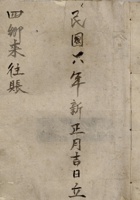 民國六年新正月吉日立
四鄉來往賬